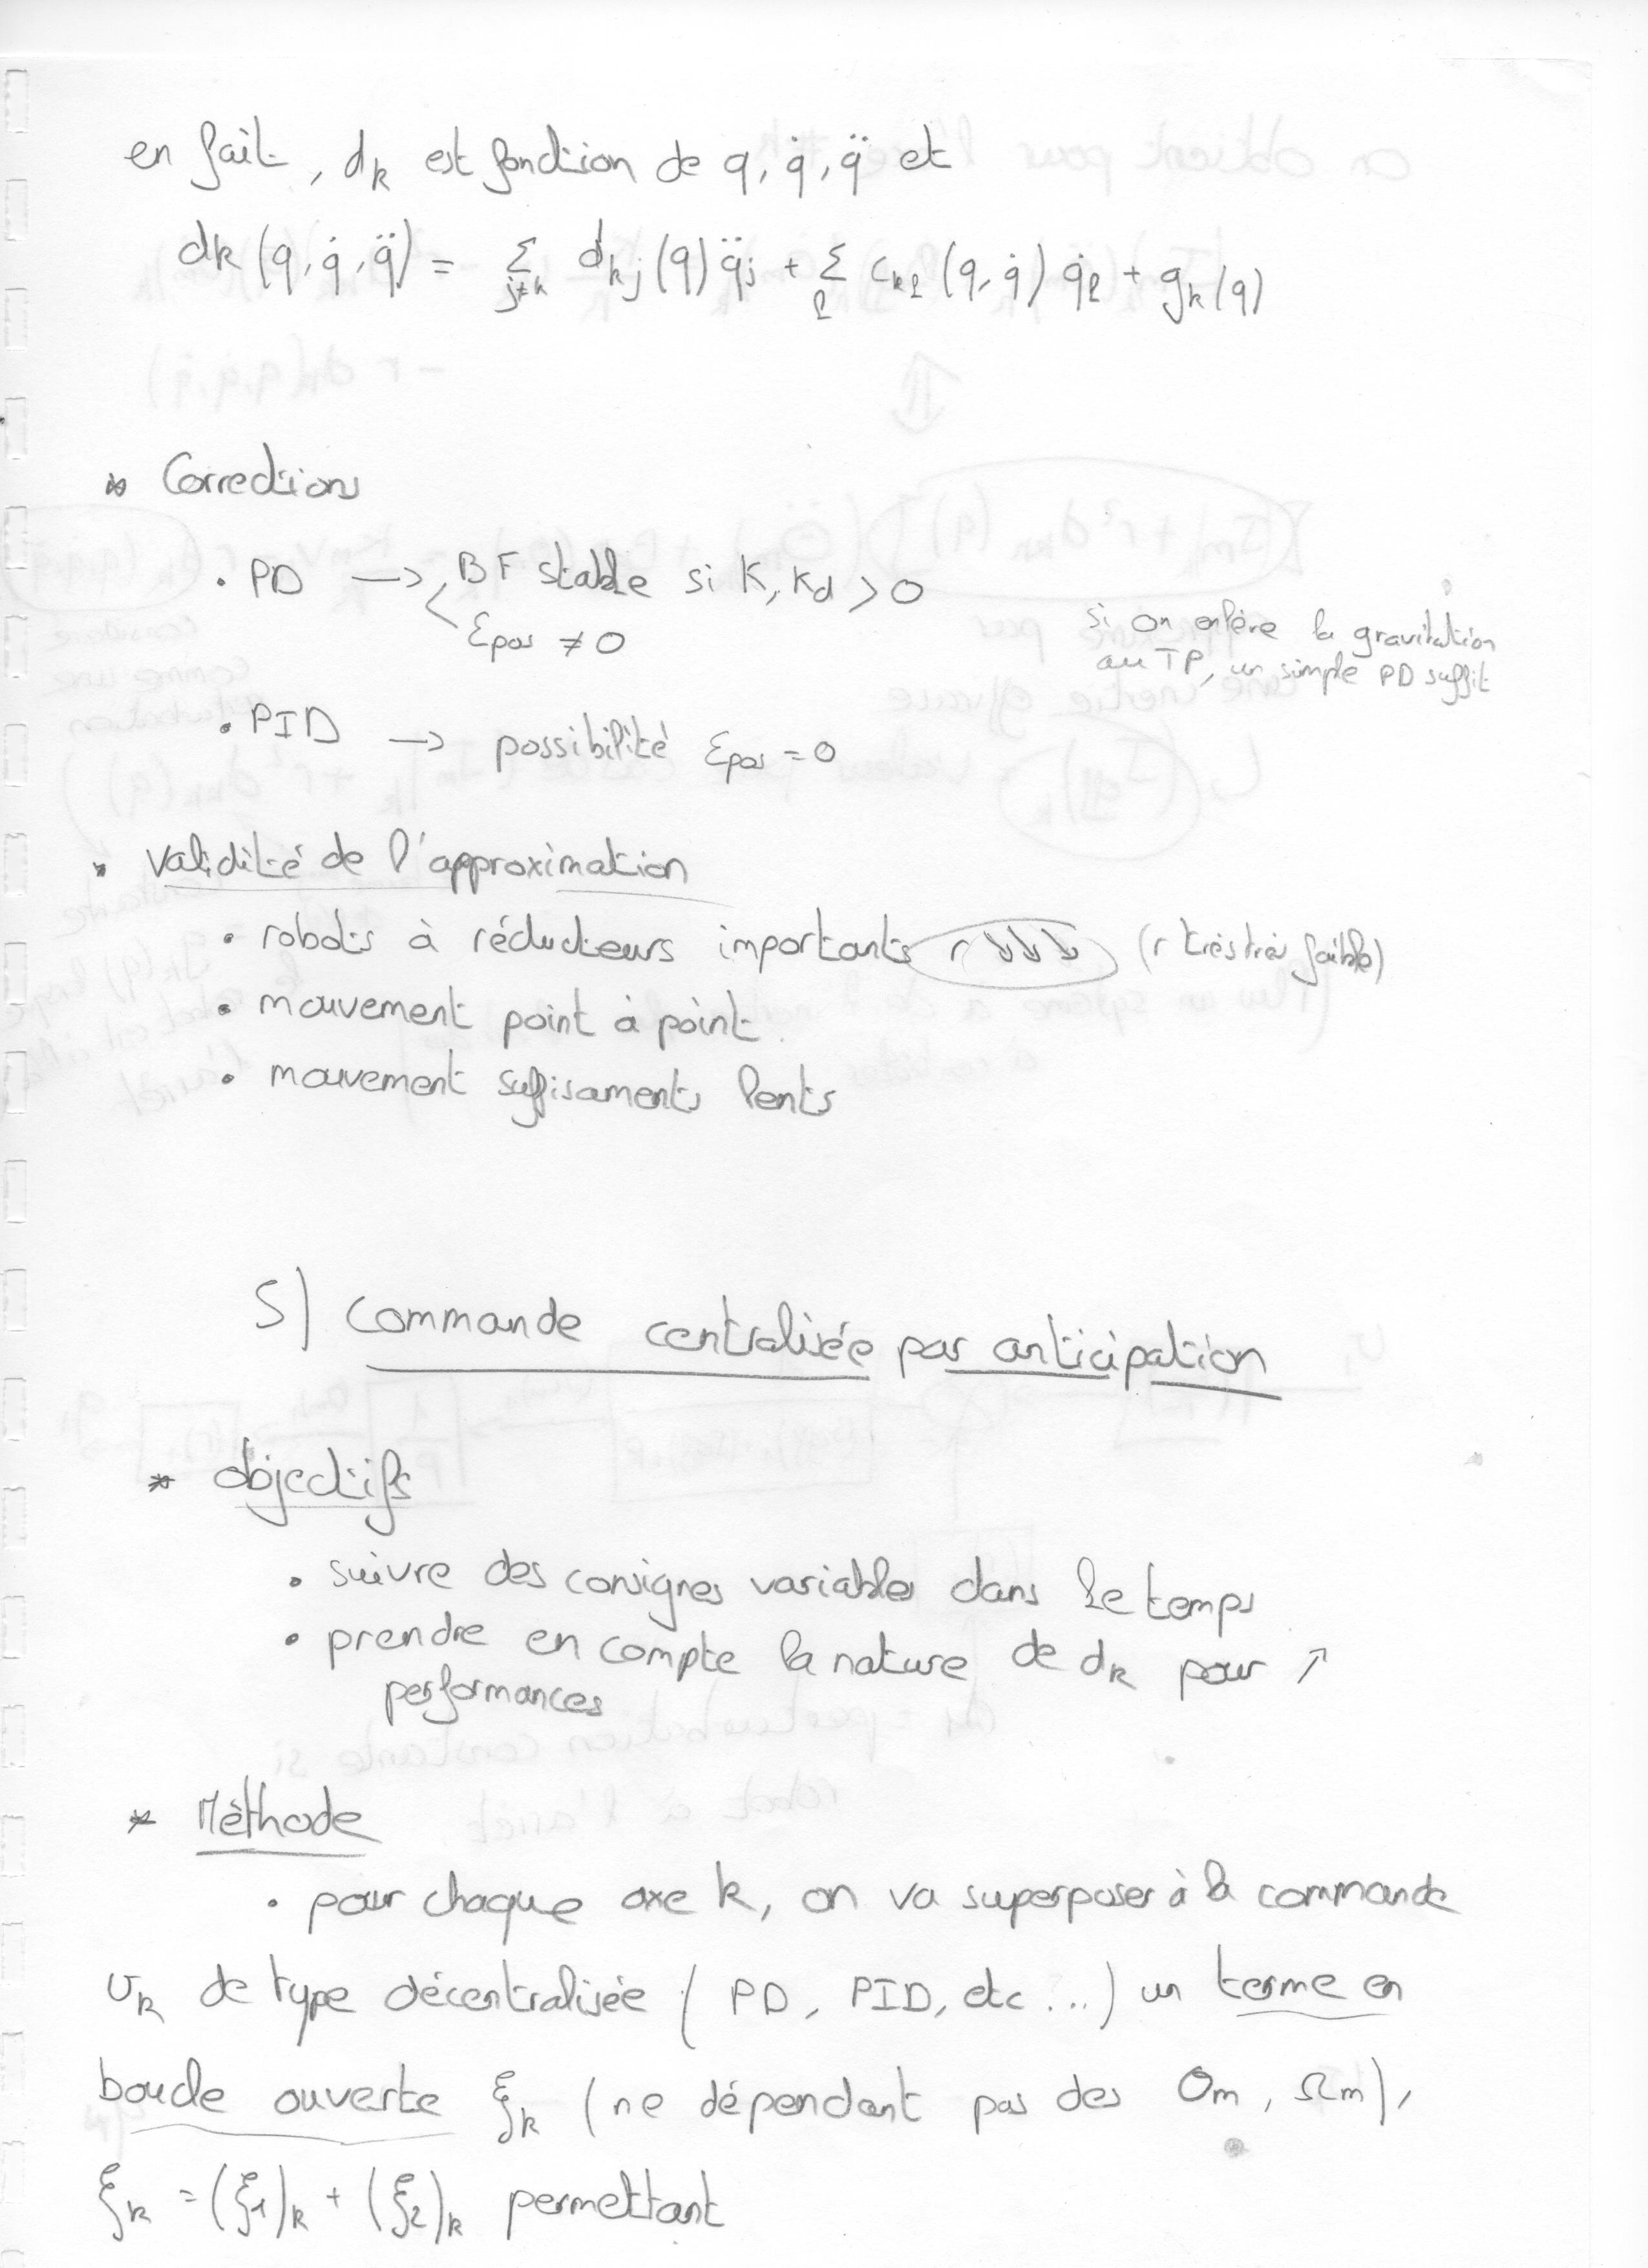 en fait, dk est fonction de q, q̇, q̈ et
dk (q, q̇, q̈) = Σ j≠k dkj (q) q̈j + Σ l ckl (q, q̇) q̇l + gk (q)
* Corrections
• PD → BF stable si K, Kd > 0
εpos ≠ 0
si on enlève la gravitation
au TP, un simple PD suffit
• PID → possibilité εpos = 0
* Validité de l'approximation
• robots à réducteurs importants r ↘↘↘ (r très très faible)
• mouvement point à point
• mouvement suffisaments lents
5) Commande centralisée par anticipation
* objectifs
• suivre des consignes variables dans le temps
• prendre en compte la nature de dk pour ↗
performances
* Méthode
• pour chaque axe k, on va superposer à la commande
Uk de type décentralisée ( PD, PID, etc ...) un terme en
boucle ouverte ξk (ne dépendant pas des Θm, Ωm),
ξk = (ξ1)k + (ξ2)k permettant